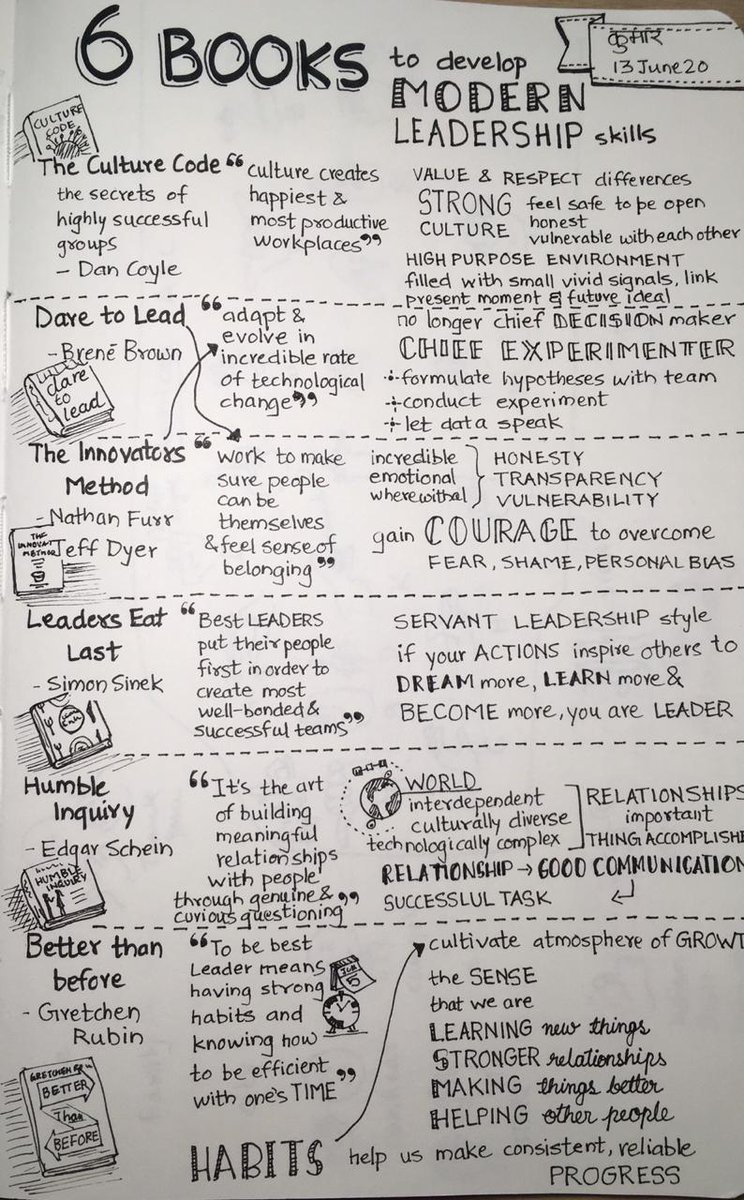 6 BOOKS to develop
MODERN
LEADERSHIP skills
कुमार
13 June 20
CULTURE
CODE
The Culture Code
the secrets of
highly successful
groups
- Dan Coyle
"culture creates
happiest &
most productive
workplaces"
VALUE & RESPECT differences
STRONG feel safe to be open
CULTURE honest
vulnerable with each other
HIGH PURPOSE ENVIRONMENT
filled with small vivid signals, link
present moment & future ideal
Dare to Lead
- Brené Brown
dare
to
lead
"adapt &
evolve in
incredible rate
of technological
change"
no longer chief DECISION maker
CHIEF EXPERIMENTER
formulate hypotheses with team
conduct experiment
let data speak
The Innovators
Method
- Nathan Furr
Jeff Dyer
THE
INNOVAT
METHOD
"work to make
sure people
can be
themselves
& feel sense of
belonging"
incredible
emotional
wherewithal
HONESTY
TRANSPARENCY
VULNERABILITY
gain COURAGE to overcome
FEAR, SHAME, PERSONAL BIAS
Leaders Eat
Last
- Simon Sinek
"Best LEADERS
put their people
first in order to
create most
well-bonded &
successful teams"
SERVANT LEADERSHIP style
if your ACTIONS inspire others to
DREAM more, LEARN more &
BECOME more, you are LEADER
Humble
Inquiry
- Edgar Schein
HUMBLE
INQUIRY
"It's the art
of building
meaningful
relationships
with people
through genuine &
curious questioning"
WORLD
interdependent
culturally diverse
technologically complex
RELATIONSHIPS
important
THING ACCOMPLISHE
RELATIONSHIP → GOOD COMMUNICATION
SUCCESSLUL TASK
Better than
before
- Gretchen
Rubin
BETTER
Than
BEFORE
"To be best
Leader means
having strong
habits and
knowing how
to be efficient
with one's TIME"
cultivate atmosphere of GROWT
the SENSE
that we are
LEARNING new things
STRONGER relationships
MAKING things better
HELPING other people
HABITS help us make consistent, reliable
PROGRESS